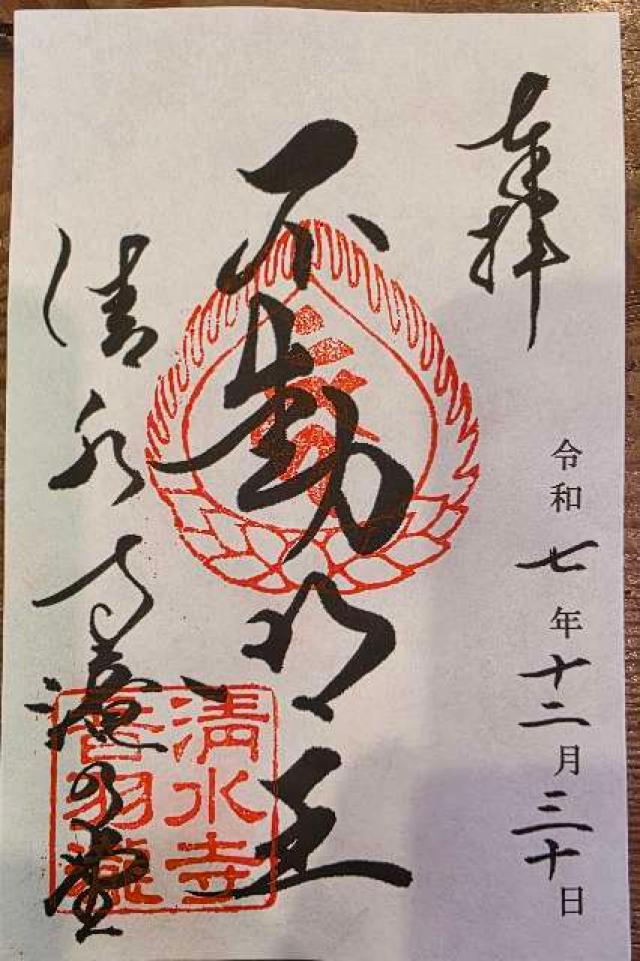 奉拝
令和七年十二月三十日
不動明王
清水寺滝の堂
清水寺
音羽瀧